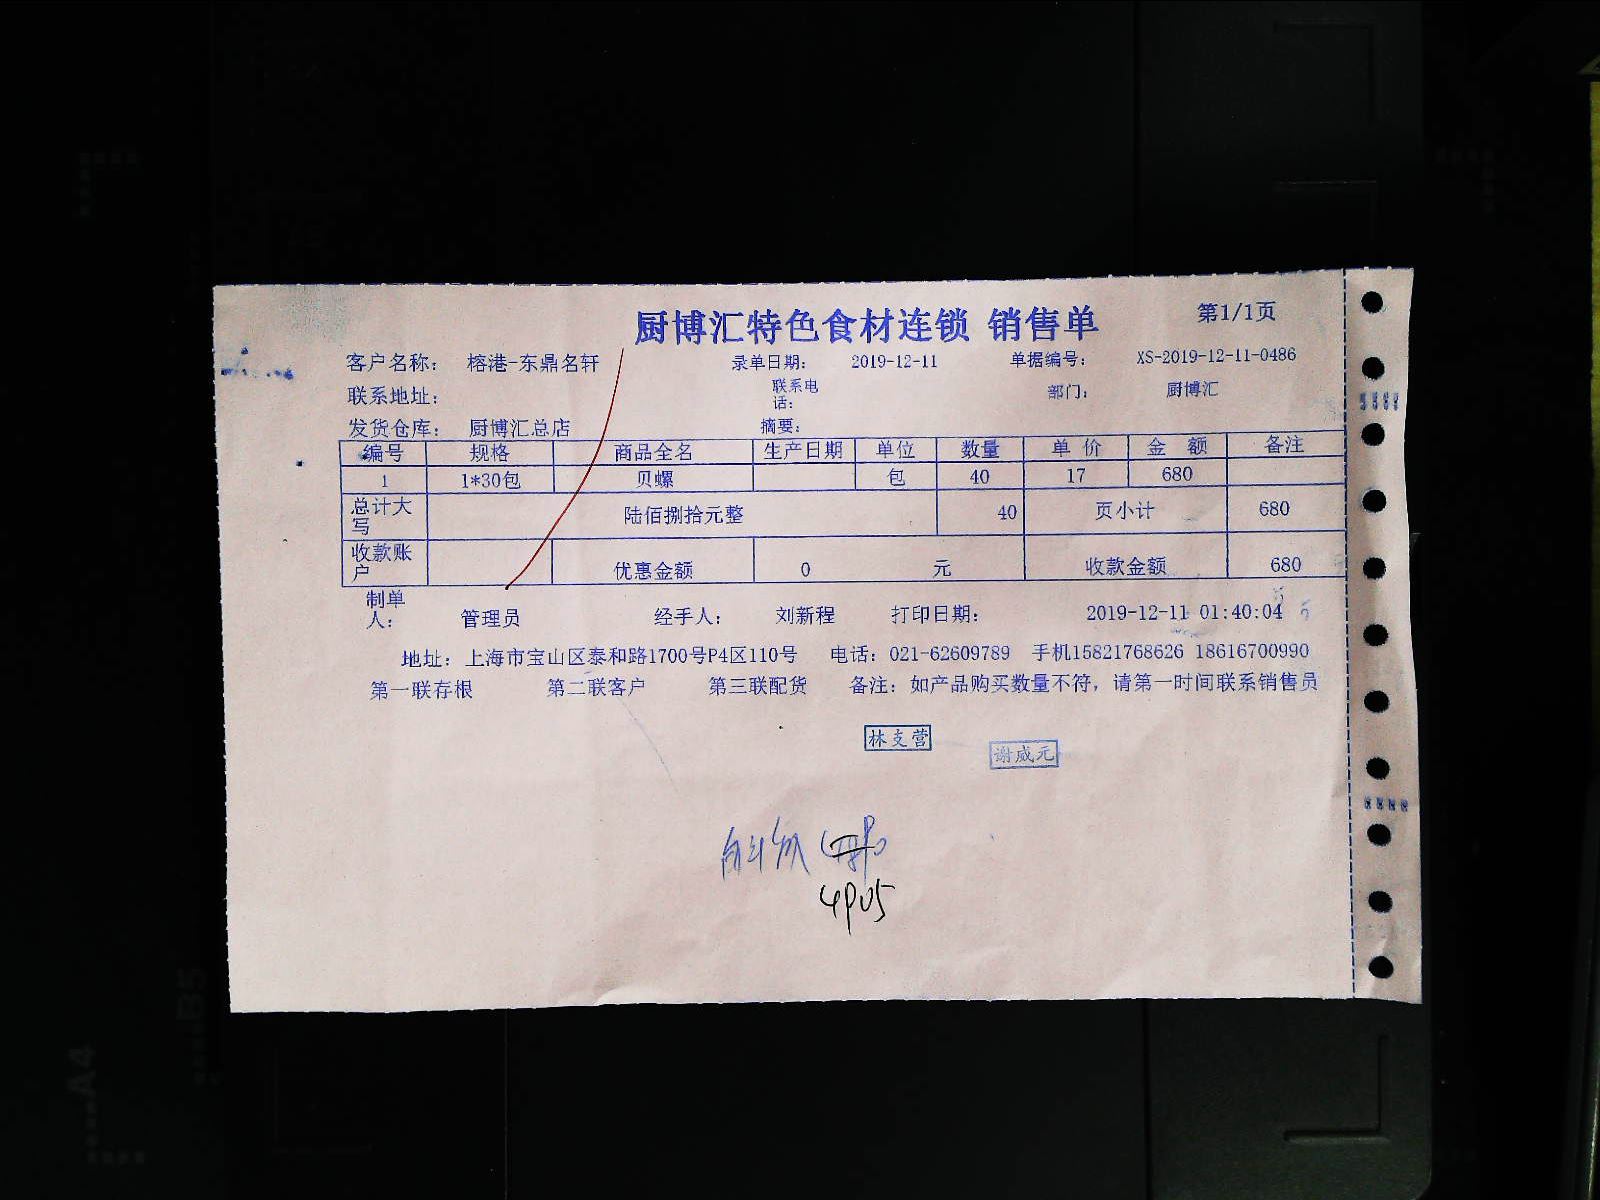 厨博汇特色食材连锁 销售单 第1/1页
客户名称： 榕港-东鼎名轩 录单日期： 2019-12-11 单据编号： XS-2019-12-11-0486
联系地址： 联系电话： 部门： 厨博汇
发货仓库： 厨博汇总店 摘要：
编号 规格 商品全名 生产日期 单位 数量 单 价 金 额 备注
1 1*30包 贝螺 包 40 17 680
总计大写 陆佰捌拾元整 40 页小计 680
收款账户 优惠金额 0 元 收款金额 680
制单人： 管理员 经手人： 刘新程 打印日期： 2019-12-11 01:40:04
地址：上海市宝山区泰和路1700号P4区110号 电话：021-62609789 手机15821768626 18616700990
第一联存根 第二联客户 第三联配货 备注：如产品购买数量不符，请第一时间联系销售员
林支营
谢威元
B5
A4